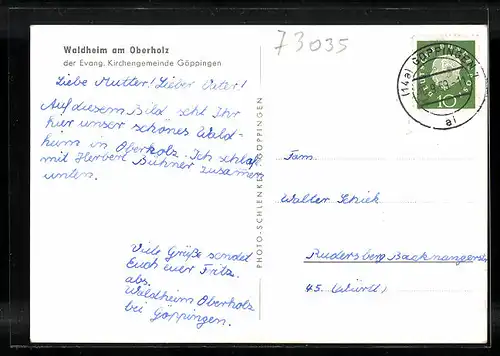 Waldheim am Oberholz
der Evang. Kirchengemeinde Göppingen
73035
Liebe Mutter! Lieber Vater!
Auf diesem Bild seht Ihr
hier unser schönes Wald-
heim in Oberholz. Ich schlafe
mit Herbert Bühner zusammen
unten.
Viele Grüße sendet
Euch euer Fritz.
abs.
Waldheim Oberholz
bei Göppingen.
PHOTO-SCHLENKER GÖPPINGEN
(14a) GÖPPINGEN
ai
10
Fam.
Walter Schiek
Rudersberg Backnangerstr
45. (Württ)